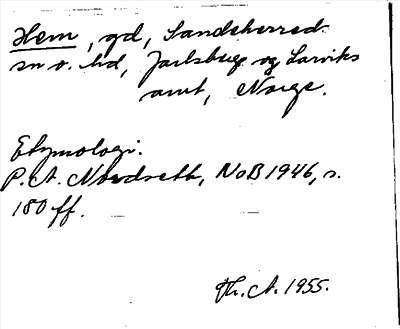 Hem, gd, Sandeherred
sn o. hd, Jarlsberg og Larviks
amt, Norge.
Etymologi.
P. A. Nordseth, NoB 1946, s.
180 ff.
Th. A. 1955.